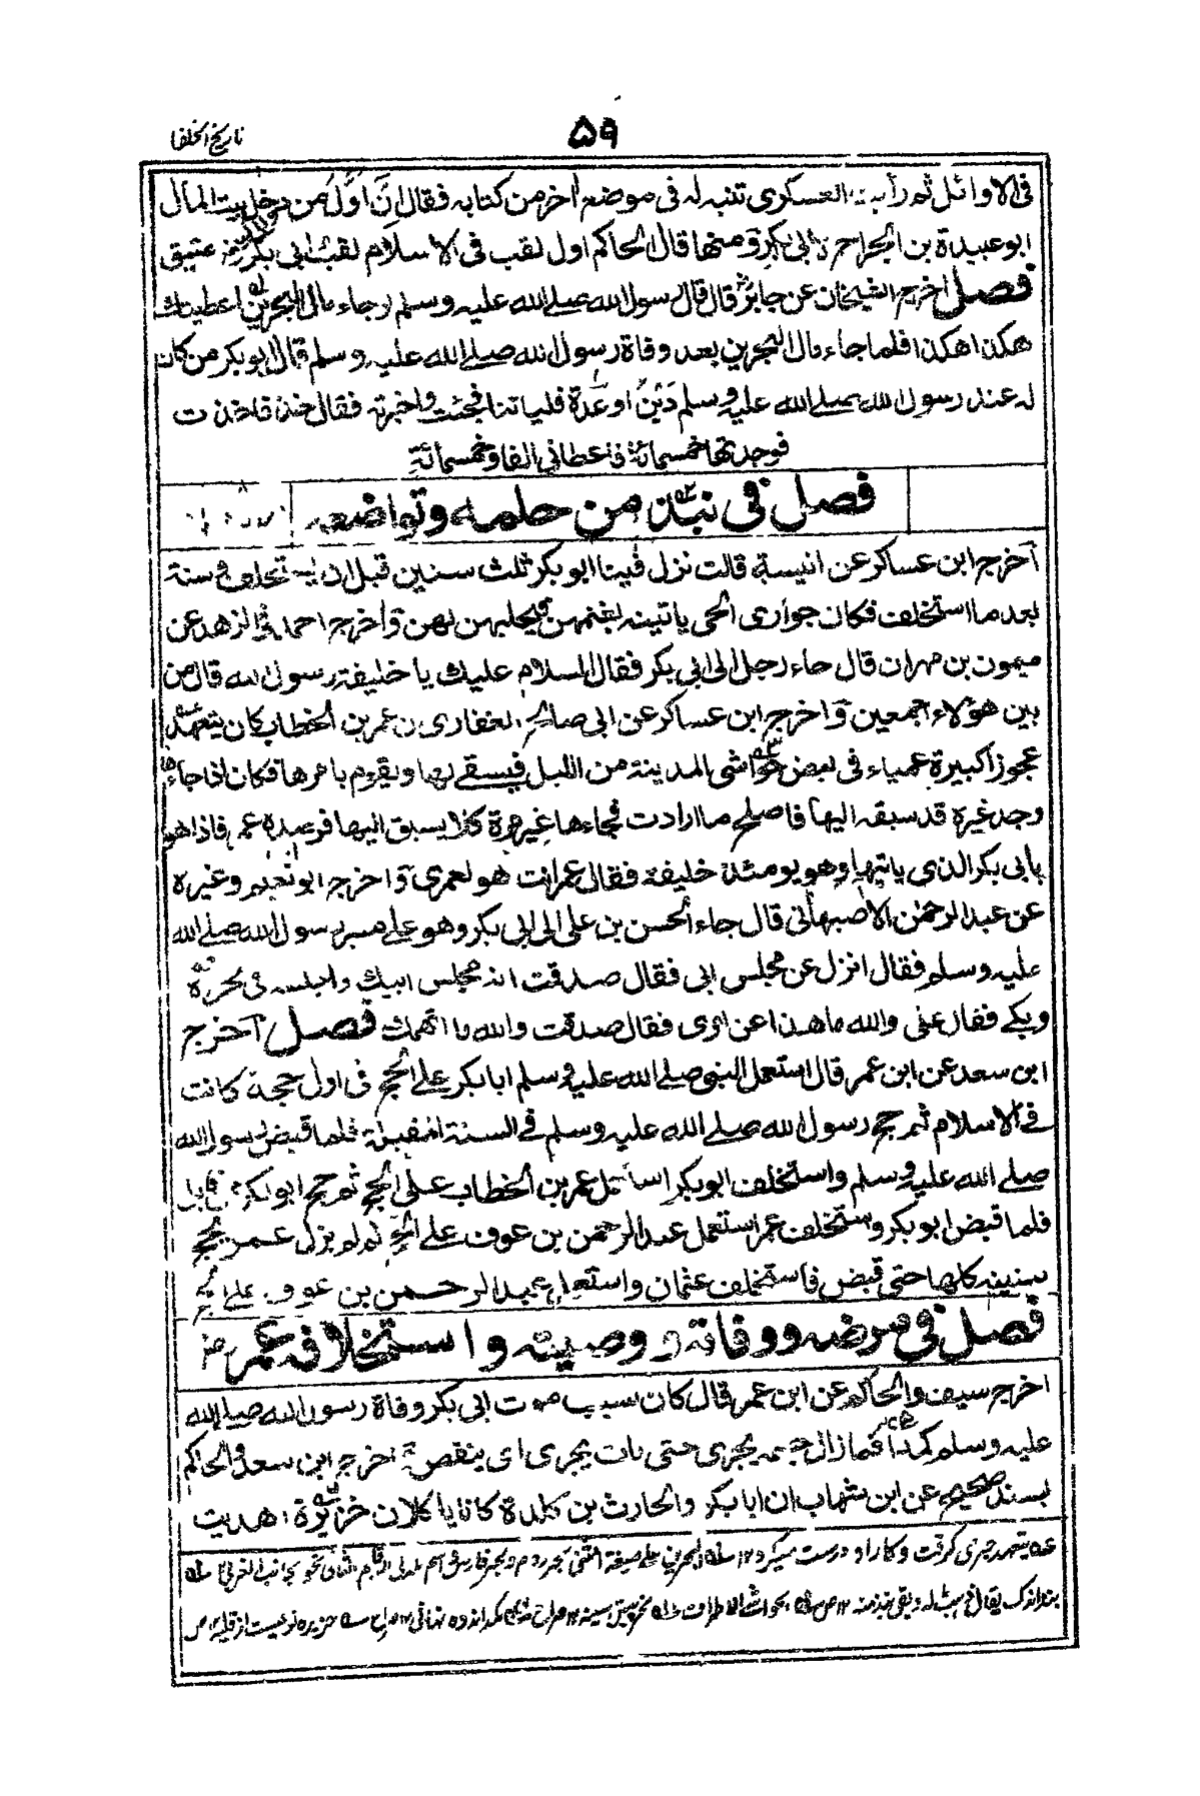 تاريخ الخلفا
۵۹
فى الاوائل ثم رأيت العسكرى تنبه له فى موضع آخر من كتابه فقال انّ اوّل من دخل بيت المال
ابو عبيدة بن الجراح لابى بكر ومنها قال الحاكم اول لقب فى الاسلام لقب ابى بكر رض عتيق
فصل اخرج الشيخان عن جابر قال قال رسول الله صلى الله عليه وسلم لو جاء مال البحرين اعطيتك
هكذا هكذا فلما جاء مال البحرين بعد وفاة رسول الله صلے الله عليه وسلم قال ابو بكر من كان
له عند رسول الله صلے الله عليه وسلم دَيْنٌ او عِدة فلياتنا فجئت واخبرته فقال خذ فاخذت
فوجدتها خمسمائة فاعطانى الفا وخمسمائة
فصل فى نبذ من حلمه وتواضعه
آخرج ابن عساكر عن انيسة قالت نزل فينا ابو بكر ثلث سنين قبل ان يستخلف وسنة
بعد ما استخلف فكان جوارى الحى ياتينه بغنمهن فيحلبهن لهن وآخرج احمد فى الزهد عن
ميمون بن مهران قال جاء رجل الى ابى بكر فقال السلام عليك يا خليفة رسول الله قال من
بين هؤلاء اجمعين وآخرج ابن عساكر عن ابى صالح الغفارى ان عمر بن الخطاب كان يتعهد
عجوزا كبيرة عمياء فى بعض حواشى المدينة من الليل فيسقے لها ويقوم بامرها فكان اذا جاءها
وجد غيره قد سبقه اليها فاصلح ما ارادت فجاءها غير مرة كلا يسبق اليها فرصده عمر فاذا هو
بابى بكر الذى ياتيها وهو يومئذ خليفة فقال عمر انت هو لعمرى وآخرج ابو نعيم وغيره
عن عبد الرحمٰن الاصبهانى قال جاء الحسن بن على الى ابى بكر وهو علے منبر رسول الله صلے الله
عليه وسلم فقال انزل عن مجلس ابى فقال صدقت انه مجلس ابيك واجلسه فى حجره
وبكے فقال على والله ما هذا عن امرى فقال صدقت والله ما اتهمك فصل آخرج
ابن سعد عن ابن عمر قال استعمل النبى صلے الله عليه وسلم ابا بكر علے الحج فى اول حجة كانت
فى الاسلام ثم حج رسول الله صلے الله عليه وسلم فے السنة المقبلة فلما قبض رسول الله
صلے الله عليه وسلم واستخلف ابو بكر استعمل عمر بن الخطاب على الحج ثم حج ابو بكر من قابل
فلما قبض ابو بكر واستخلف عمر استعمل عبد الرحمن بن عوف علے الحج ثم لم يزل عمر يحج
سنينه كلها حتى قبض فاستخلف عثمان واستعمل عبد الرحمن بن عوف علے الحج
فصل فى مرضه ووفاته ووصيته واستخلافه عمر رض
اخرج سيف والحاكم عن ابن عمر قال كان سبب موت ابى بكر وفاة رسول الله صلے الله
عليه وسلم كمدا فما زال جسمه يجرى حتى مات يجرى اى ينقص وآخرج ابن سعد والحاكم
بسند صحيح عن ابن شهاب ان ابا بكر والحارث بن كلدة كانا ياكلان خزيرة اهديت